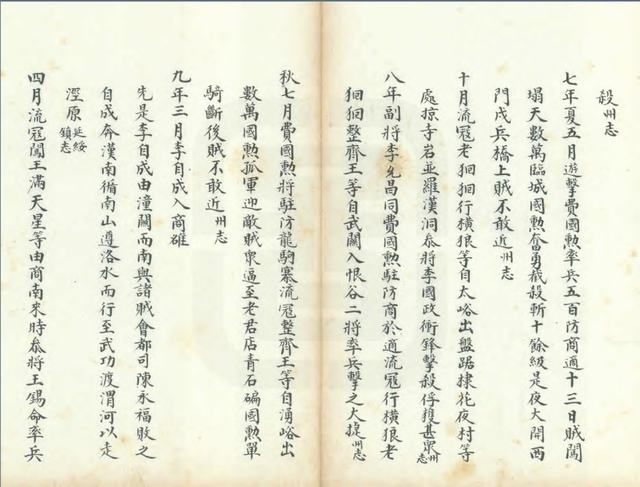 殺州志
七年夏五月遊擊費國勲率兵五百防商適十三日賊闖
塌天數萬臨城國勲奮勇截殺斬十餘級是夜大開西
門戍兵橋上賊不敢近州志
十月流寇老𢙇𢙇行橫狼等自太峪出盤踞棣花夜村等
處掠寺岩並羅漢洞叅將李國政衝鋒擊殺俘獲甚衆州志
八年副將李允昌同費國勲駐防商於適流寇行橫狼老
𢙇𢙇整齊王等自武關入恨谷二將率兵擊之大捷州志
秋七月費國勲將駐防龍駒寨流寇整齊王等自湧峪出
數萬國勲孤軍迎敵賊衆逼至老君店青石碥國勲單
騎斷後賊不敢近州志
九年三月李自成入商雒
先是李自成由潼關而南與諸賊會都司陳永福敗之
自成奔漢南循南山遵洛水而行至武功渡渭河以走
涇原延綏鎮志
四月流寇闖王滿天星等由商南來時叅將王錫命率兵